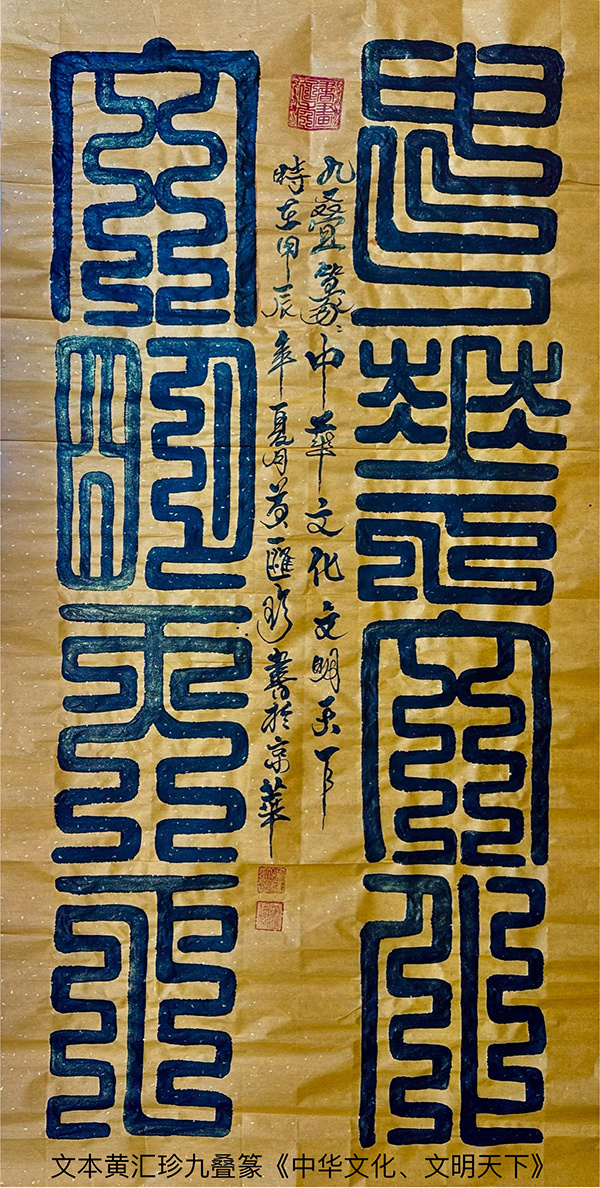 中華文化
九叠篆中華文化文明天下
時在甲辰年夏月黄匯珍書於京華
文明天下
文本黄汇珍九叠篆《中华文化、文明天下》